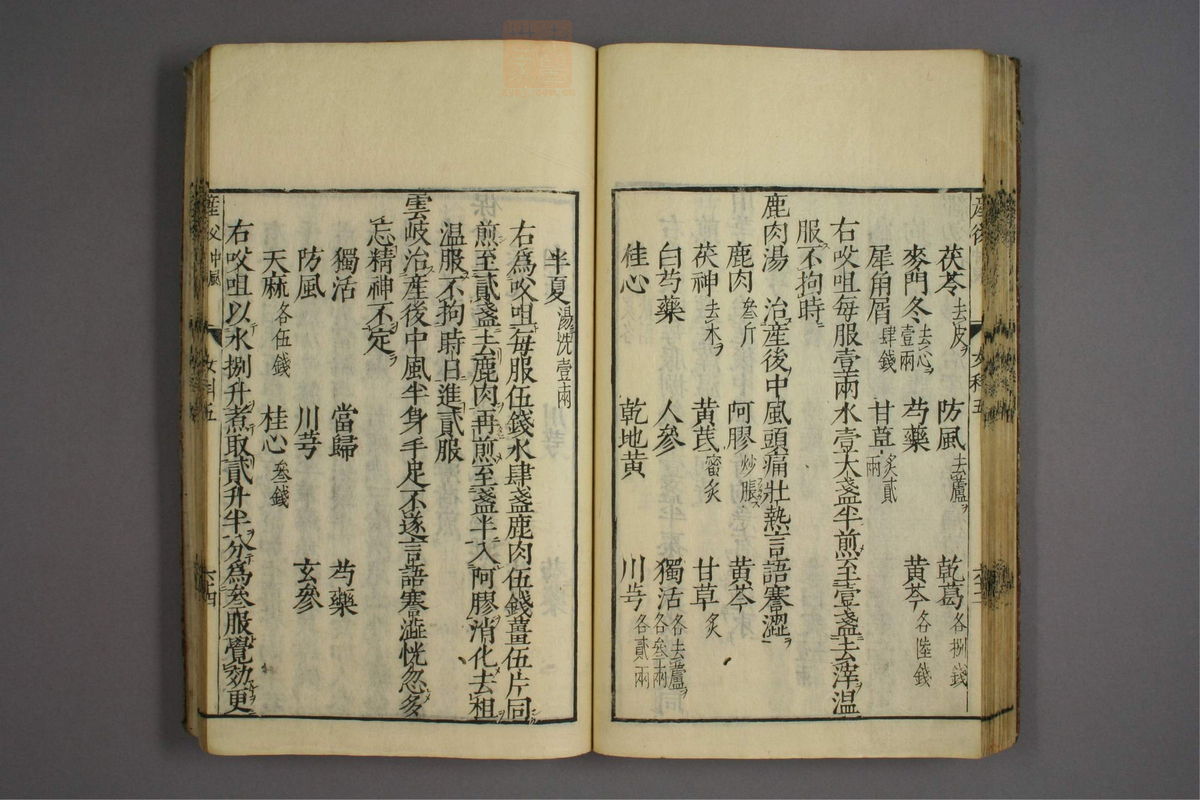 茯苓去皮 防風去蘆 乾葛各捌錢
麥門冬去心壹兩 芍藥 黄芩各陸錢
犀角屑肆錢 甘草炙貳兩
右㕮咀每服壹兩水壹大盞半煎至壹盞去滓温
服不拘時
鹿肉湯 治産後中風頭痛壯熱言語蹇澁
鹿肉叁斤 阿膠炒脹 黄芩
茯神去木 黄芪蜜炙 甘草炙
白芍藥 人參 獨活各去蘆各叁兩
桂心 乾地黄 川芎各貳兩
半夏湯洗壹兩
右爲㕮咀每服伍錢水肆盞鹿肉伍錢薑伍片同
煎至貳盞去鹿肉再煎至盞半入阿膠消化去粗
温服不拘時日進貳服
雲岐治産後中風半身手足不遂言語蹇澁恍忽多
忘精神不定
獨活 當歸 芍藥
防風 川芎 玄參
天麻各伍錢 桂心叁錢
右㕮咀以水捌升煮取貳升半分爲叁服覺効更
産後 女科五
女科五